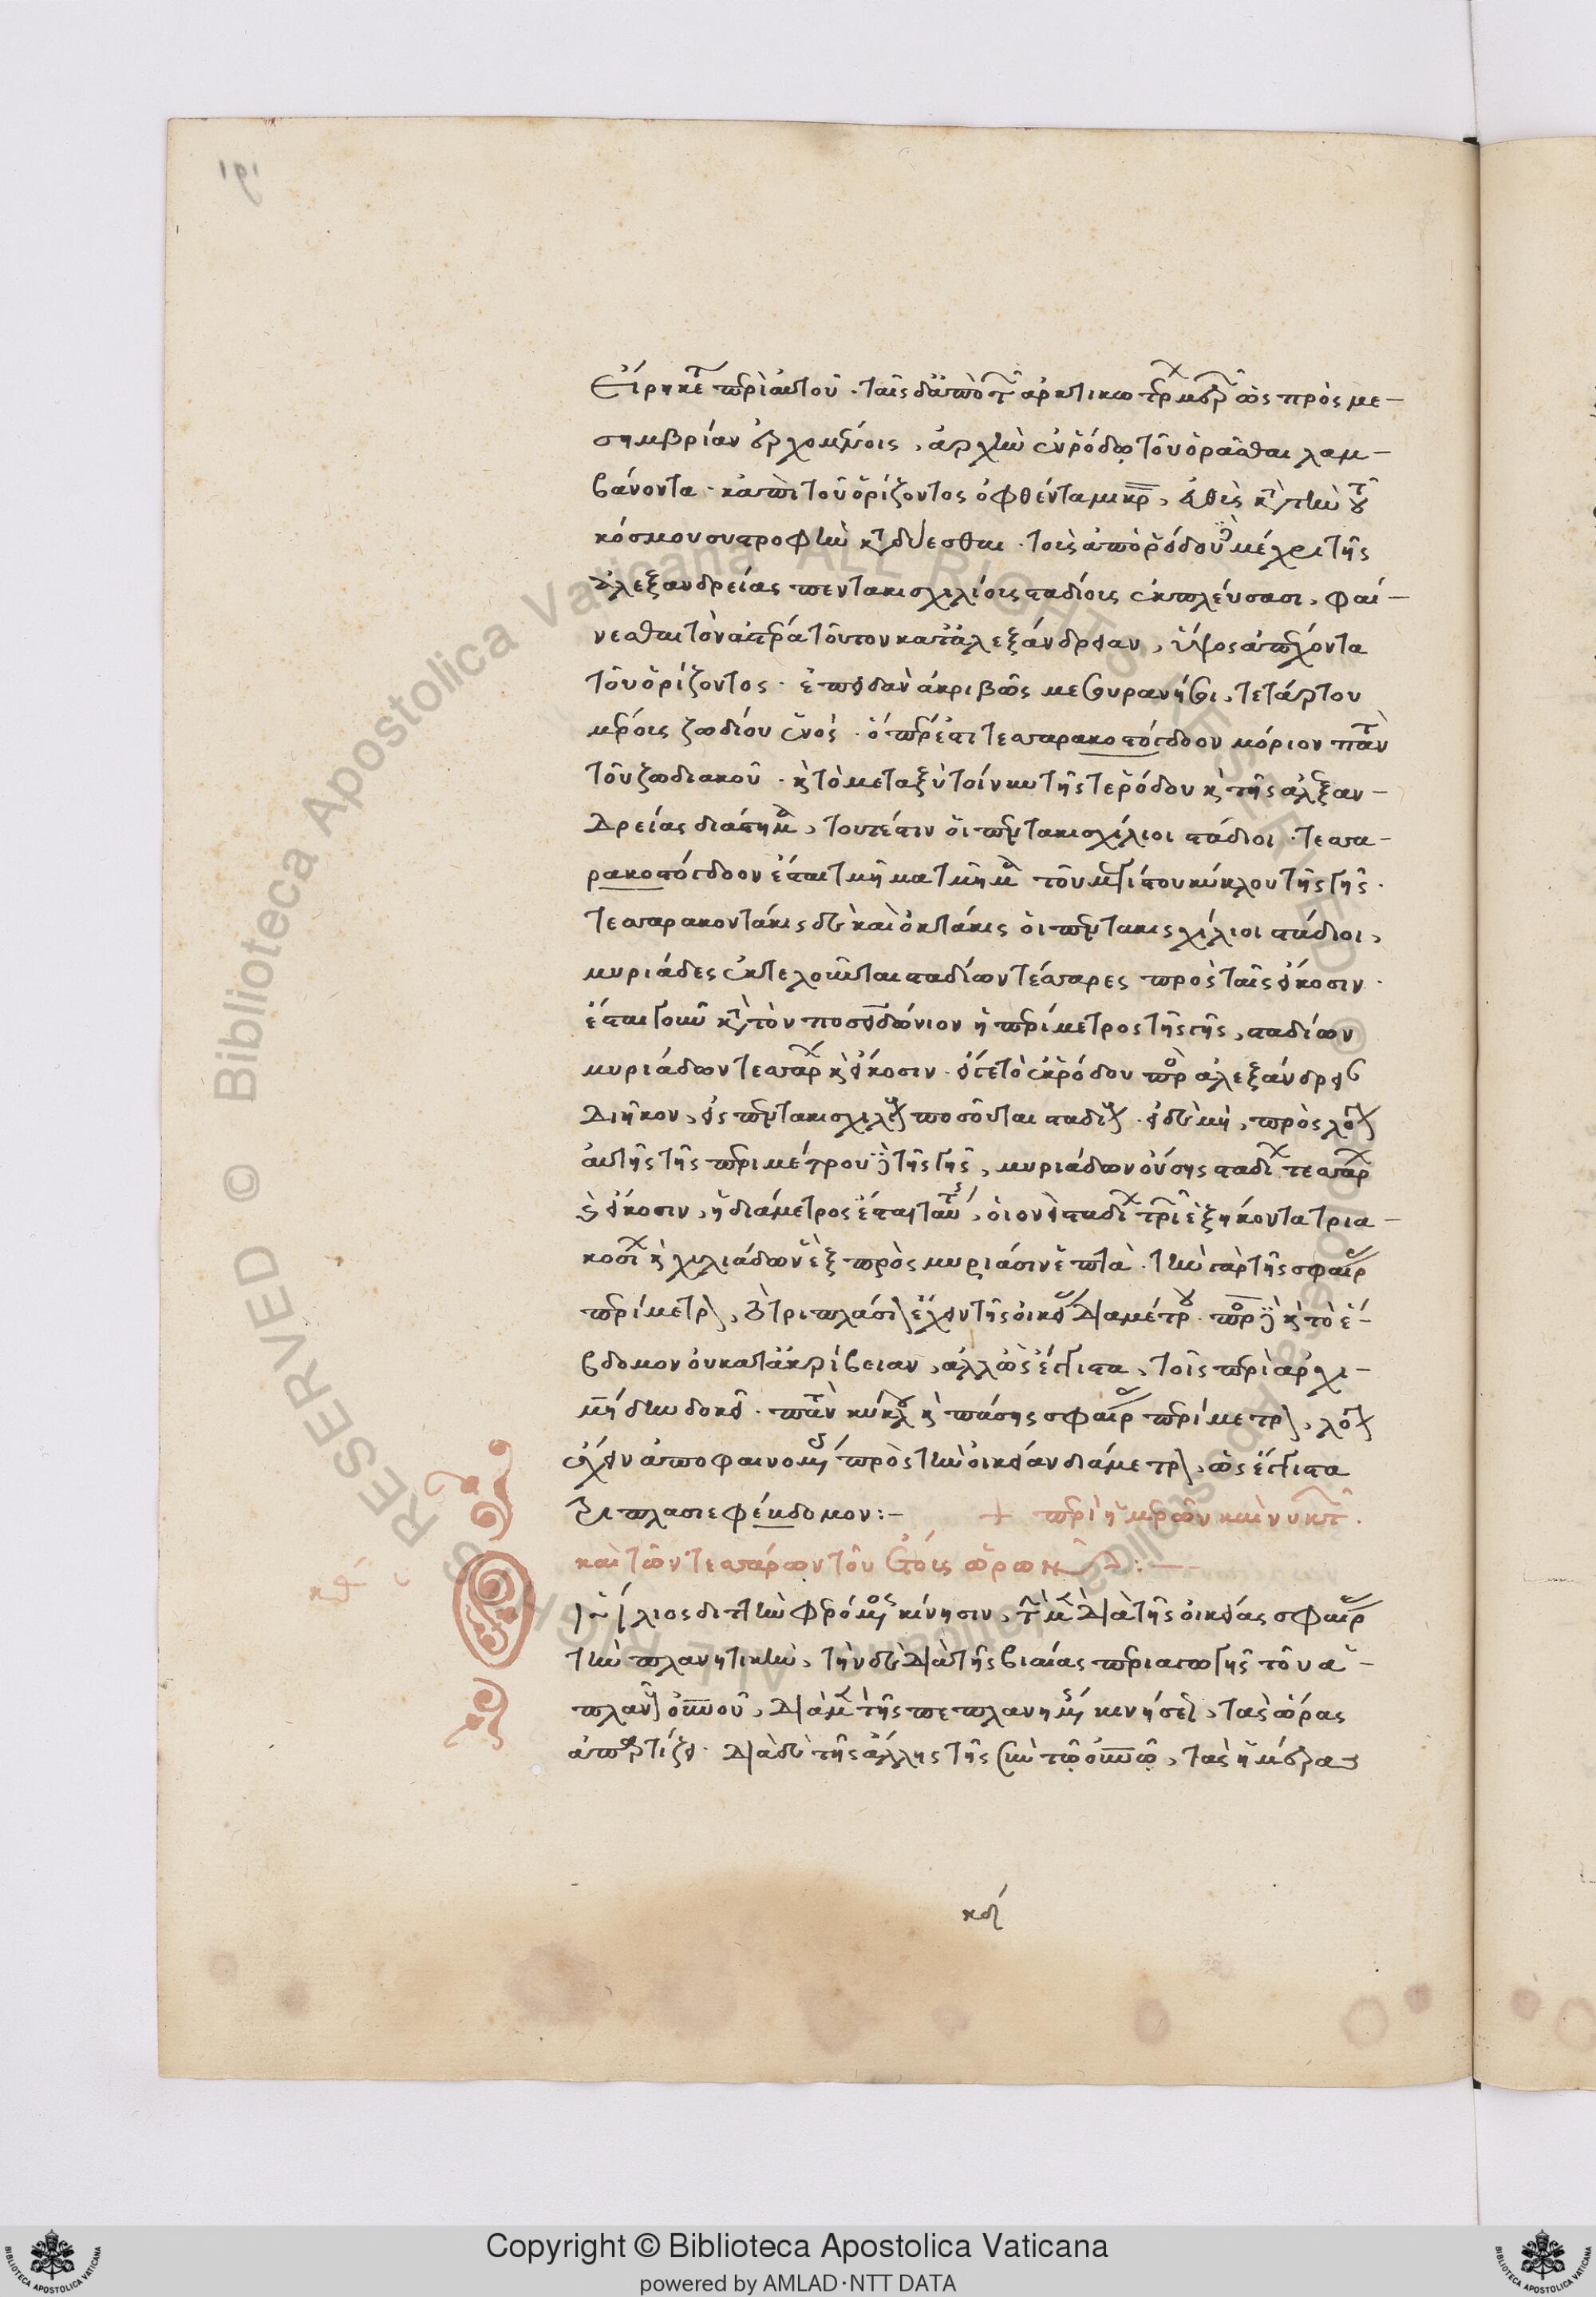 εἴρηκε περὶ αὐτοῦ · τοῖς δὲ ἀπὸ τῶν ἀρκτικωτέρων μερῶν ὡς πρὸς με-
σημβρίαν ἐρχομένοις, ἀρχὴν ἐν ῥόδῳ τοῦ ὁρᾶσθαι λαμ-
βάνοντα · κἀπὶ τοῦ ὁρίζοντος ὀφθέντα μικρὸν, εὐθὺς κατὰ τὴν τοῦ
κόσμου συστροφὴν καταδύεσθαι · τοῖς ἀπὸ ῥόδου δὲ μέχρι τῆς
ἀλεξανδρείας πεντακισχιλίοις σταδίοις ἐκπλεύσασι, φαί-
νεσθαι τὸν ἀστέρα τοῦτον κατ' ἀλεξάνδρειαν, ὕψος ἀπέχοντα
τοῦ ὁρίζοντος · ἐπειδὰν ἀκριβῶς μεσουρανήσῃ, τετάρτου
μέρους ζωδίου ἑνός · ὅπερ ἐστὶ τεσσαρακοστόγδοον μόριον παντὸς
τοῦ ζωδιακοῦ · καὶ τὸ μεταξὺ τοίνυν τῆς τε ῥόδου καὶ τῆς ἀλεξαν-
δρείας διάστημα, τουτέστιν οἱ πεντακισχίλιοι στάδιοι · τεσσα-
ρακοστόγδοον ἔσται τμῆμα τμῆμα τοῦ μεγίστου κύκλου τῆς γῆς ·
τεσσαρακοντάκις δὲ καὶ ὀκτάκις οἱ πεντακισχίλιοι στάδιοι,
μυριάδες ἐκτελοῦνται σταδίων τέσσαρες πρὸς ταῖς εἴκοσιν ·
ἔσται γοῦν κατὰ τὸν ποσειδώνιον ἡ περίμετρος τῆς γῆς, σταδίων
μυριάδων τεσσάρων καὶ εἴκοσιν · εἴγε τὸ ἐκ ῥόδου πρὸς ἀλεξάνδρειαν
διῆκον, εἰς πεντακισχιλίους ποσοῦται σταδίους · εἰ δὲ μὴ, πρὸς λόγον
αὐτῆς τῆς περιμέτρου δὲ τῆς γῆς, μυριάδων οὔσης σταδίων τεσσάρων
καὶ εἴκοσιν, ἡ διάμετρος ἔσται ταύτης, οἱονεὶ σταδίων τριῶν ἑξήκοντα τρια-
κοσίων καὶ χιλιάδων ἓξ πρὸς μυριάσιν ἑπτά · τὴν γὰρ τῆς σφαίρας
περίμετρον, τὸ τριπλάσιον ἔχειν τῆς οἰκείας διαμέτρου · πρὸς δὲ καὶ τὸ ἕ-
βδομον οὐ κατ' ἀκρίβειαν, ἀλλ' ὡς ἔγγιστα, τοῖς περὶ ἀρχι-
μήδην δοκεῖ · παντὸς κύκλου καὶ πάσης σφαίρας περίμετρον, λόγον
ἔχειν ἀποφαινομένοις πρὸς τὴν οἰκείαν διάμετρον, ὡς ἔγγιστα
τριπλασιεφέκδομον :-   + περὶ ἡμερῶν καὶ νυκτῶν ·
καὶ τῶν τεσσάρων τοῦ ἔτους ὡρῶν :-
Ὁ ἥλιος διττὴν φερόμενος κίνησιν, τὴν μὲν διὰ τῆς οἰκείας σφαίρας
τὴν πλανητικὴν, τὴν δὲ διὰ τῆς βιαίας περιαγωγῆς τοῦ ἀ-
πλανοῦς οὐρανοῦ, διὰ μὲν τῆς πεπλανημένης κινήσεως, τὰς ὥρας
ἀπαρτίζει · διὰ δὲ τῆς ἄλλης τῆς σὺν τῷ οὐρανῷ, τὰς ἡμέρας
καὶ